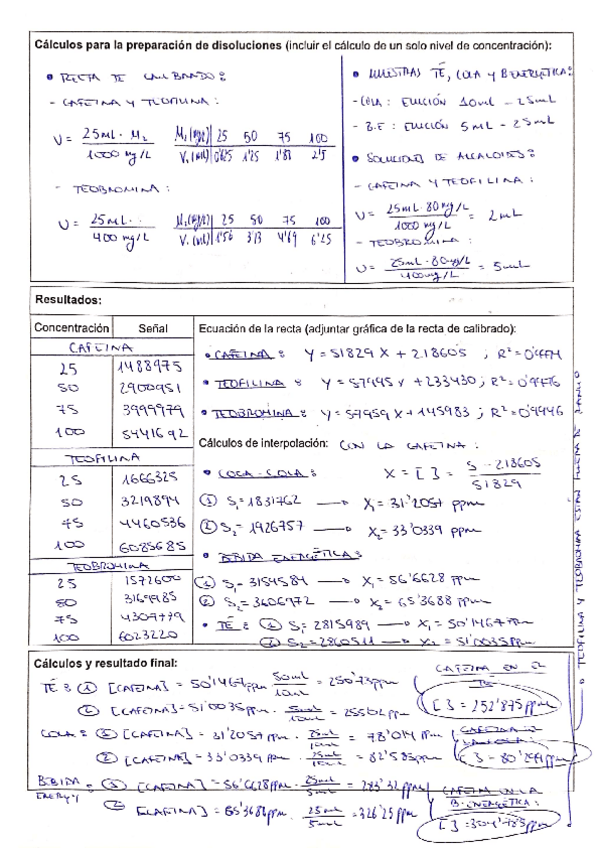 Cálculos para la preparación de disoluciones (incluir el cálculo de un solo nivel de concentración):
• RECTA DE CALIBRADO:
- CAFEINA Y TEOFILINA:
V = 25mL · M2 / 1000 mg/L
M2 (mg/L) 25 50 75 100
V1 (mL) 0'625 1'25 1'88 2'5
- TEOBROMINA:
V = 25mL · / 400 mg/L
M2 (mg/L) 25 50 75 100
V1 (mL) 1'56 3'13 4'69 6'25
• MUESTRAS TÉ, COLA Y B.ENERGÉTICA:
- COLA: 10mL - 25mL
- B.E: 5mL - 25mL
• DE ALCALOIDES:
- CAFEINA Y TEOFILINA:
V = 25mL · 80 mg/L / 1000 mg/L = 2mL
- TEOBROMINA:
V = 25mL · 80mg/L / 400mg/L = 5mL
Resultados:
Concentración Señal
CAFEINA
25 1488975
50 2900951
75 3999979
100 5441692
TEOFILINA
25 1666325
50 3219894
75 4460536
100 6085685
TEOBROMINA
25 1572600
50 3169985
75 4309779
100 6023220
Ecuación de la recta (adjuntar gráfica de la recta de calibrado):
• CAFEINA: Y = 51829 X + 218605 ; R² = 0'9974
• TEOFILINA: Y = 57995 X + 233430 ; R² = 0'9976
• TEOBROMINA: Y = 57959 X + 145983 ; R² = 0'9946
Cálculos de interpolación: CON LA CAFEINA:
• COCA-COLA: X = [ ] = S - 218605 / 51829
① S1 = 1831762 → X1 = 31'2057 ppm
② S2 = 1926757 → X2 = 33'0339 ppm
• BEBIDA ENERGÉTICA:
① S1 = 3154584 → X1 = 56'6628 ppm
② S2 = 3606972 → X2 = 65'3688 ppm
• TÉ: ① S1 = 2815989 → X1 = 50'1467 ppm
② S2 = 2860511 → X2 = 51'0035 ppm
→ TEOFILINA Y TEOBROMINA ESTÁN FUERA DE RANGO
Cálculos y resultado final:
TÉ: ① [CAFEINA] = 50'1467ppm · 50mL / 10mL = 250'73ppm
② [CAFEINA] = 51'0035ppm · 50mL / 10mL = 255'02ppm
CAFEINA EN EL TÉ
[ ] = 252'875ppm
COLA: ① [CAFEINA] = 31'2057 ppm · 25mL / 10mL = 78'014 ppm
② [CAFEINA] = 33'0339 ppm · 25mL / 10mL = 82'585ppm
CAFEINA EN LA COLA:
[ ] = 80'299ppm
BEBIDA ENERGY: ① [CAFEINA] = 56'6628ppm · 25mL / 5mL = 283'32 ppm
② [CAFEINA] = 65'3688 ppm · 25mL / 5mL = 326'25 ppm
CAFEINA EN LA B.ENERGÉTICA:
[ ] = 304'785ppm